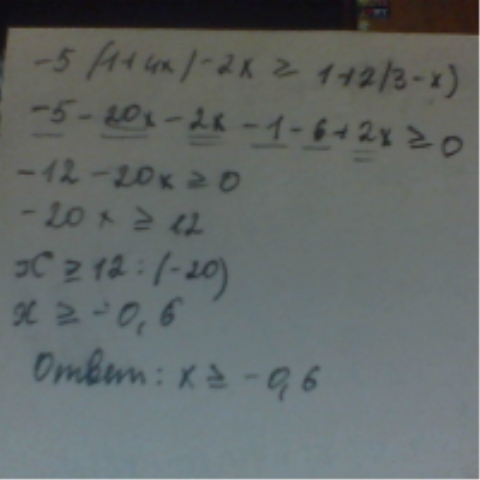 -5(1+4x)-2x ≥ 1+2(3-x)
-5-20x-2x-1-6+2x ≥ 0
-12-20x ≥ 0
-20x ≥ 12
x ≥ 12:(-20)
x ≥ -0,6
Ответ: x ≥ -0,6